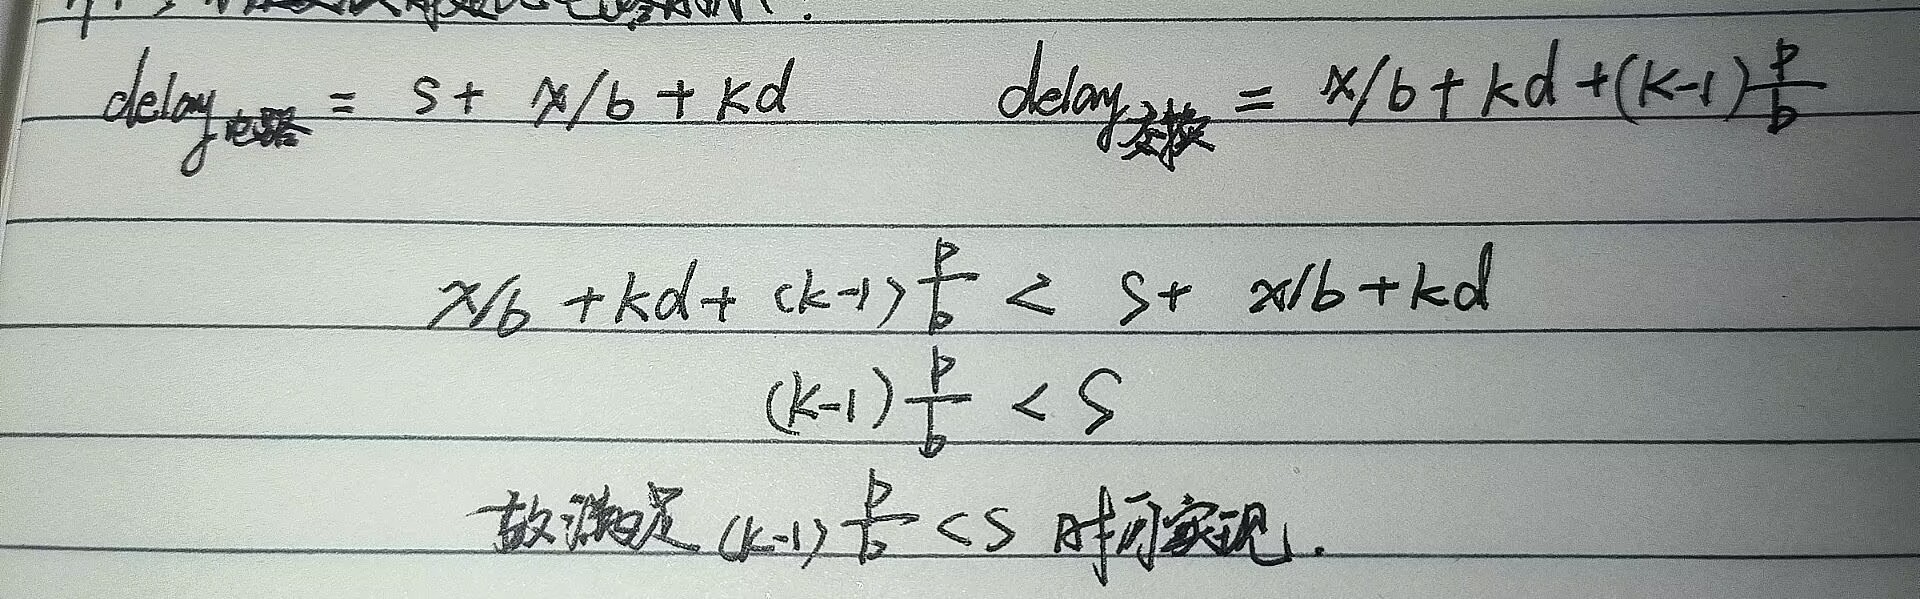 delay电路 = S + x/b + kd    delay交换 = x/b + kd + (k-1) p/b
x/b + kd + (k-1) p/b < S + x/b + kd
(k-1) p/b < S
故满足 (k-1) p/b < S 时可实现.